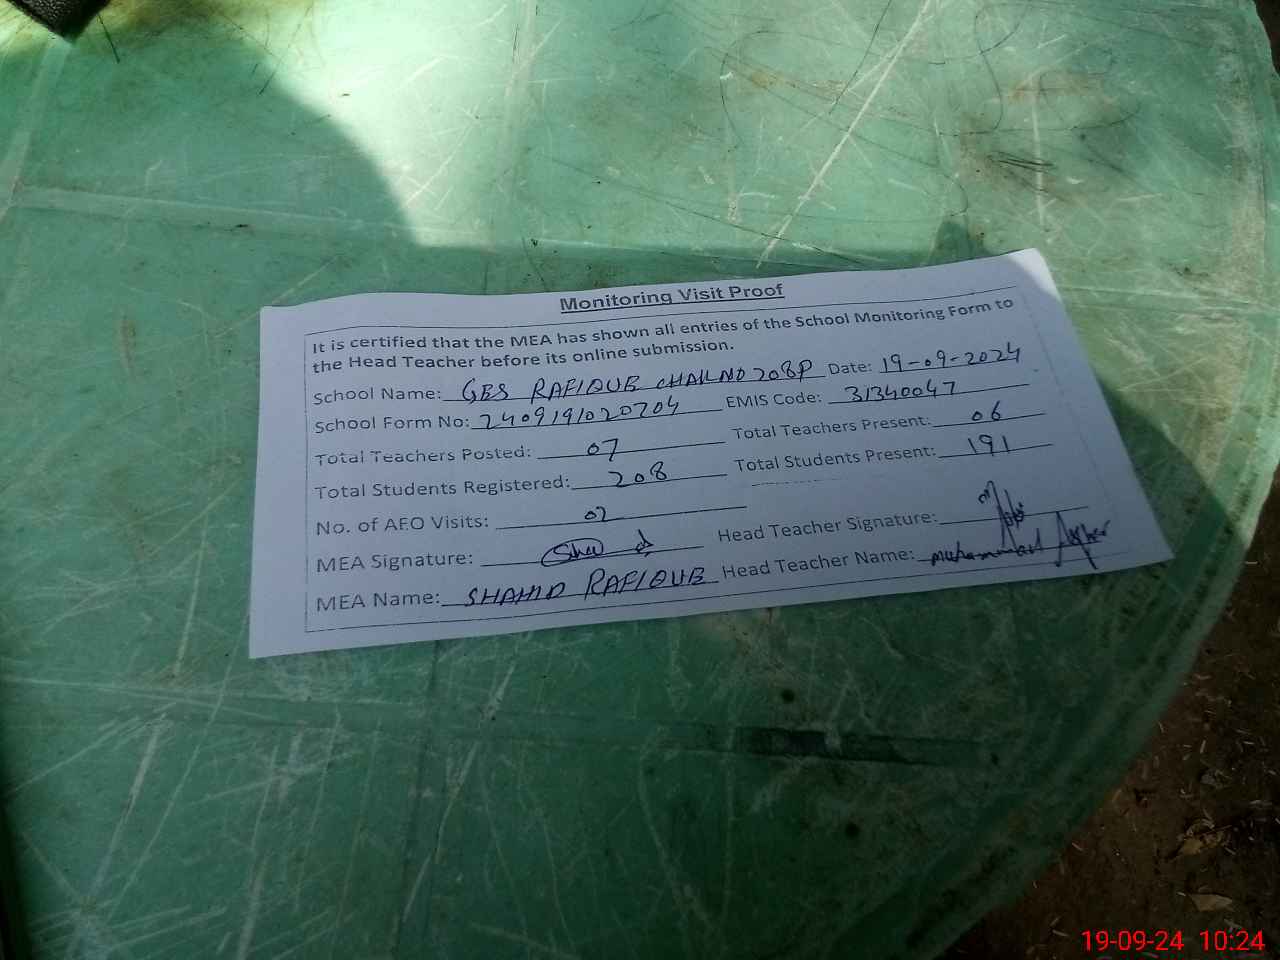 Monitoring Visit Proof
It is certified that the MEA has shown all entries of the School Monitoring Form to
the Head Teacher before its online submission.
School Name: GES RAFIQUE CHAK NO 208P Date: 19-09-2024
School Form No: 2409191020704 EMIS Code: 31340047
Total Teachers Posted: 07 Total Teachers Present: 06
Total Students Registered: 208 Total Students Present: 191
No. of AEO Visits: 02
MEA Signature: Head Teacher Signature:
MEA Name: SHAHID RAFIQUE Head Teacher Name: Muhammad
19-09-24 10:24